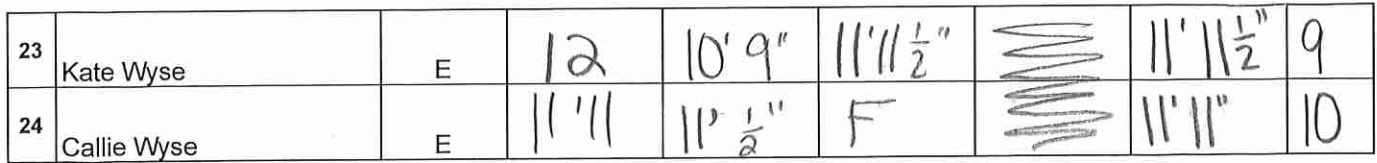 23 Kate Wyse E 12 10' 9" 11'11 1/2" 11' 11 1/2" 9
24 Callie Wyse E 11'11 11' 1/2" F 11'11" 10